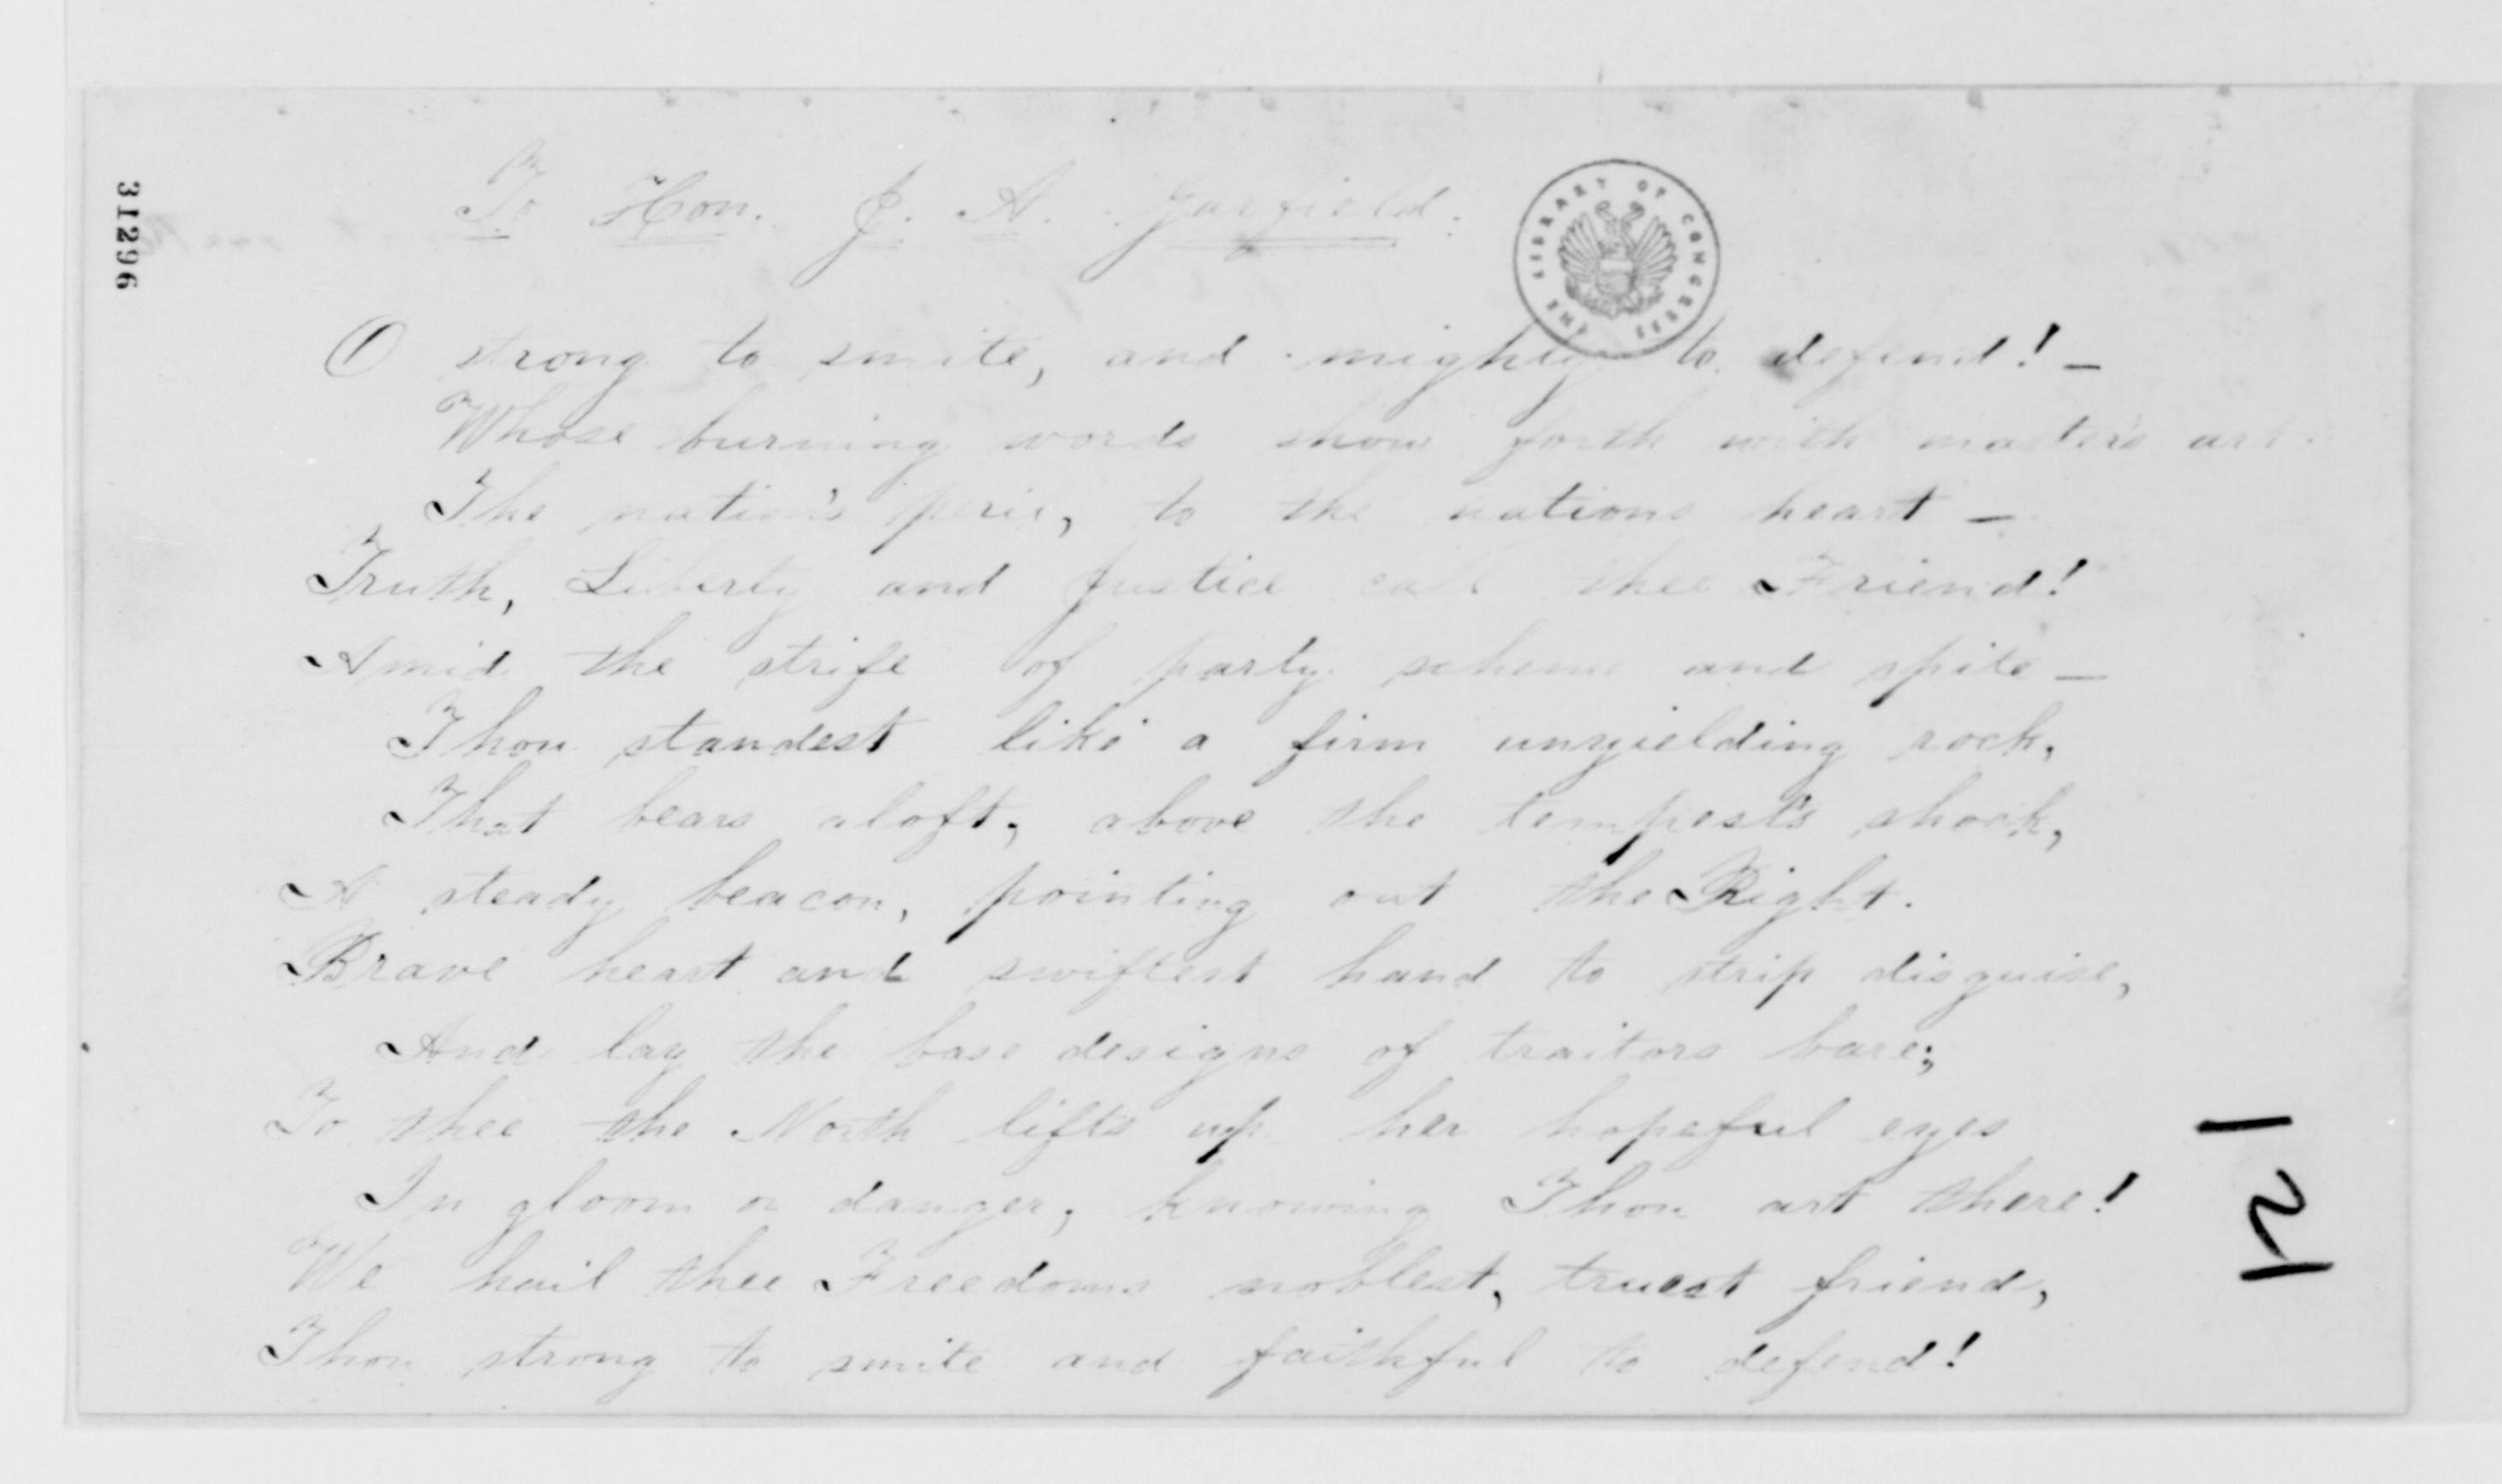 31296
To Hon. J. A. Garfield.
THE LIBRARY OF CONGRESS
O strong to smite, and mighty to defend! —
Whose burning words show forth with master's art
The nation's peril, to the nations heart —
Truth, Liberty and Justice call thee Friend!
Amid the strife of party scheme and spite —
Thou standest like a firm unyielding rock,
That bears aloft, above the tempest's shock,
A steady beacon, pointing out the Right.
Brave heart and swiftest hand to strip disguise,
And lay the base designs of traitors bare;
To thee the North lifts up her hopeful eyes
In gloom or danger, knowing Thou art there!
We hail thee Freedoms noblest, truest friend,
Thou strong to smite and faithful to defend!